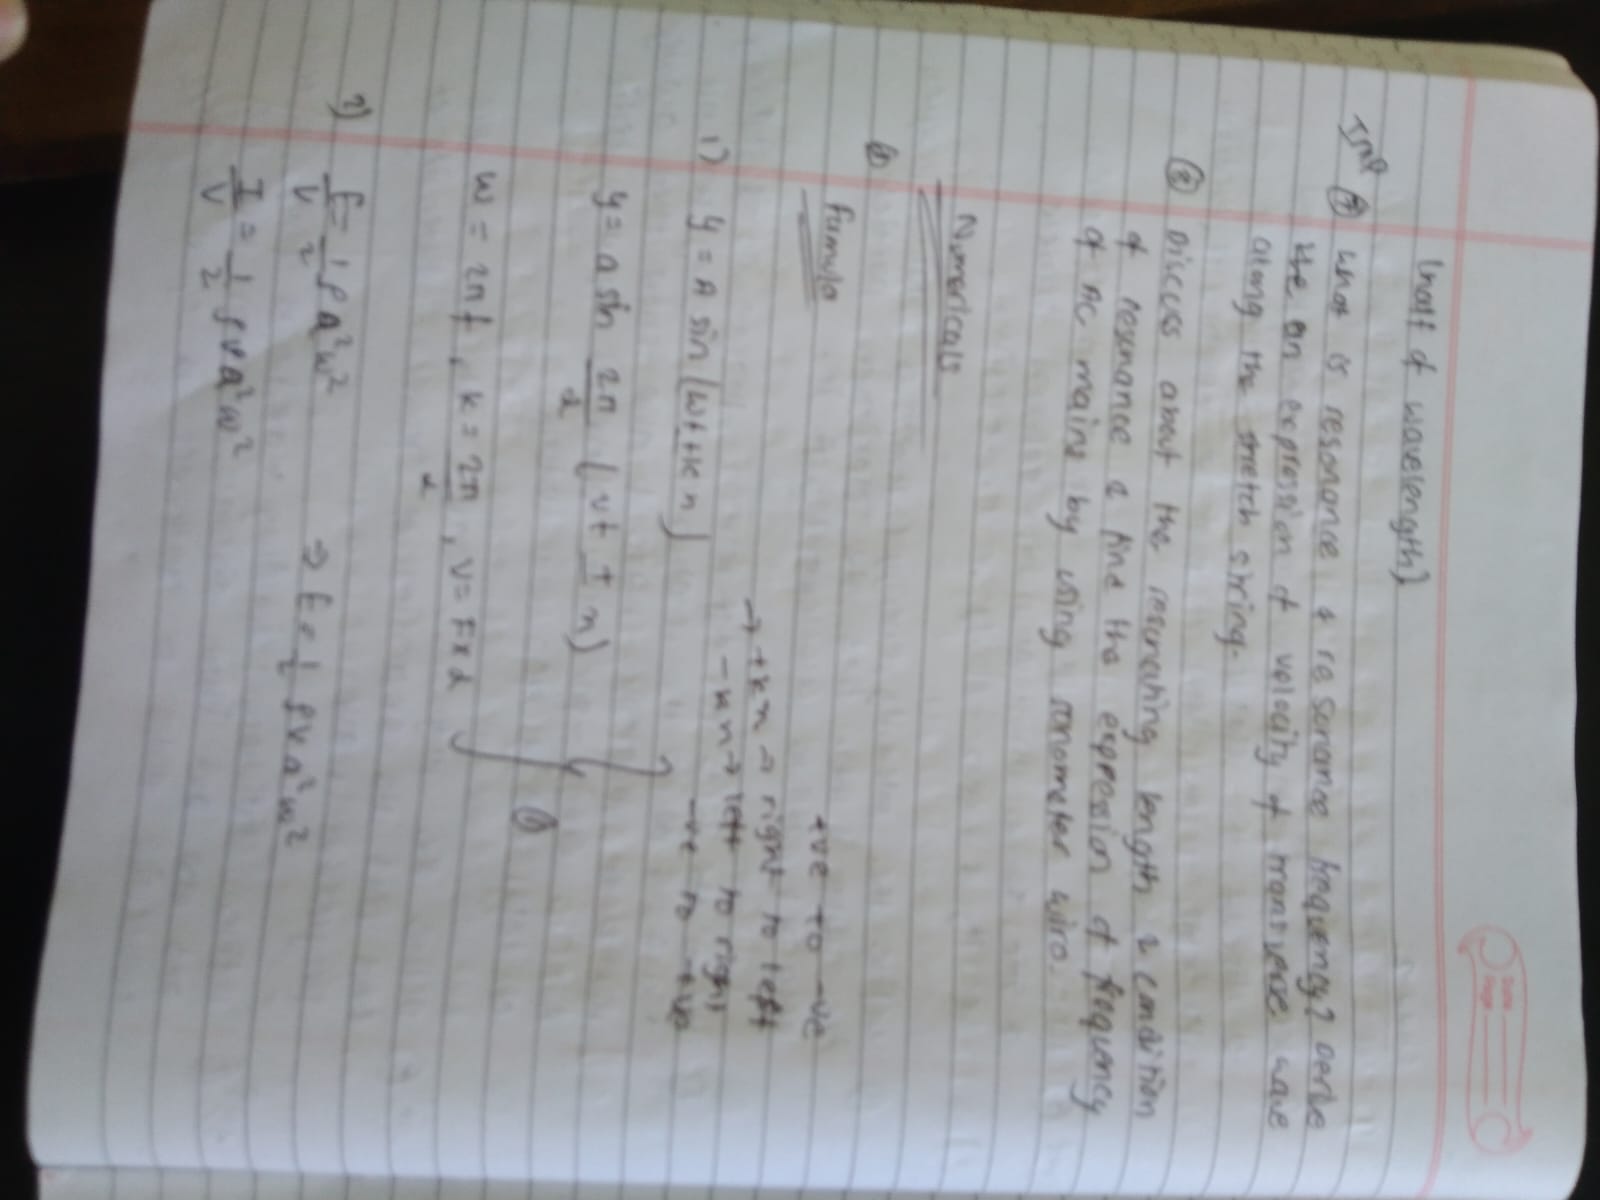 (half of wavelength)
Imp ⑦ what is resonance & resonance frequency? Derive
an expression of velocity of transverse wave
along the stretch string.
⑧ Discuss about the resonating length & condition
of resonance & find the expression of frequency
of AC mains by using sonometer wire.
Numericals
Formula
+ve to -ve
→ +kx → right to left
1) y = A sin (wt ± kx)
-kx → left to right
-ve to +ve
y = a sin 2π/λ (vt ± x)
w = 2πf, k = 2π/λ, v = f×λ
①
2) E/V = 1/2 ρa²w² ⇒ E = 1/2 ρva²w²
I/V = 1/2 ρva²w²
Date
Page